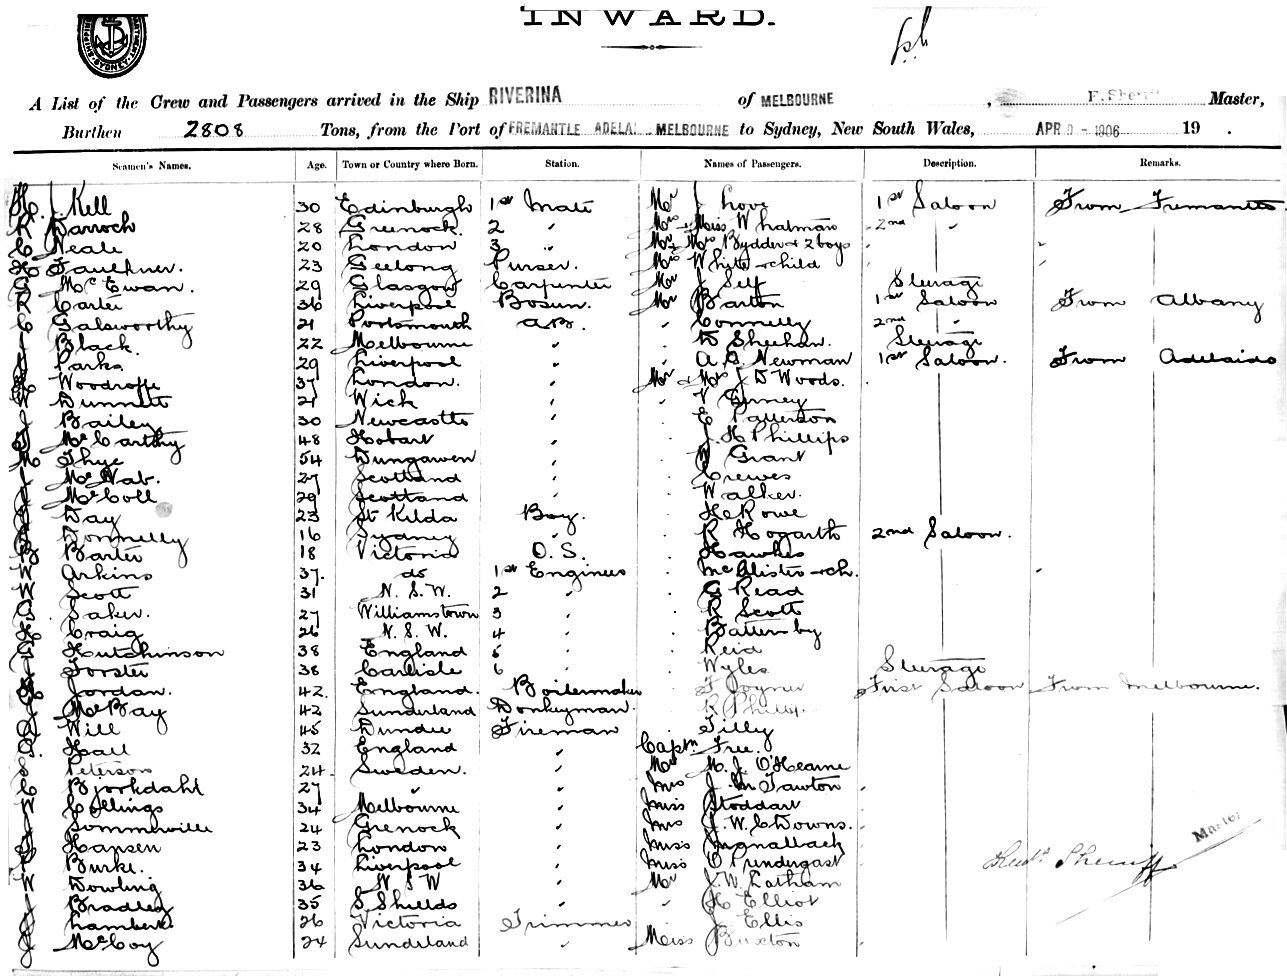 INWARD.
A List of the Crew and Passengers arrived in the Ship RIVERINA of MELBOURNE, F. Sherriff Master,
Burthen 2808 Tons, from the Port of FREMANTLE ADELAI MELBOURNE to Sydney, New South Wales, APR 9 - 1906 19 .
Seamen's Names. Age. Town or Country where Born. Station. Names of Passengers. Description. Remarks.
H. J. Kell 30 Edinburgh 1st Mate Mr J Love 1st Saloon From Fremantle
R Darroch 28 Greenock 2 " Mrs & Miss Whatman 2nd "
C Neale 20 London 3 " Mr & Mrs Bydder & 2 boys "
Faulkner. 23 Geelong Purser. Mrs Whyte & child "
McEwan. 29 Glasgow Carpenter Mr J Self Steerage
R Carter 36 Liverpool Bosun. Mr Barton 1st Saloon From Albany
C Galsworthy 21 Portsmouth A.B. " Connelly 2nd "
Black 22 Melbourne " " D Sheehan. Steerage
Parks 29 Liverpool " " A. G. Newman 1st Saloon. From Adelaide
Woodroffe 37 London. " Mr & Mrs J D Woods.
W Dunnett 21 Wick " " V Gurney
Bailey 30 Newcastle " " E Patterson
McCarthy 48 Hobart " " J. H Phillips
M Shye 54 Dungarven " " W Grant
McNab. 27 Scotland " " Crewes
McColl 29 Scotland " " Walker.
Day 23 St Kilda Boy. " H. Rowe
Donnelly 16 Sydney " " R Hogarth 2nd Saloon.
Barter 18 Victoria O.S. " Hawkes
W Arkins 37. do 1st Engineer " McAlister & ch. "
W Scott 31 N.S.W. 2 " " G Read
G Saker. 27 Williamstown 3 " " R Scott
Craig 26 N.S.W. 4 " " Battersby
Hutchinson 38 England 5 " " Reid
Forster 38 Carlisle 6 " " Wyles Steerage
Jordan. 42 England. Boilermaker " F Joyner First Saloon From Melbourne.
McBay 42 Sunderland Donkeyman. " R Phillip.
Will 45 Dundee Fireman " Tilly
G. Hall 32 England " Captn. Free.
Peterson 24 Sweden. " Mrs M. J. O'Hearne
C Bjorkdahl 27 " " Mrs J. M Fawton
W Collings 34 Melbourne " Miss Stoddart
Sommerville 24 Grenock " Mrs J. W. C Downs.
Hansen 23 London " Miss Monalback
Burke. 34 Liverpool " Miss O Prundergast
W Dowling 36 N S W " Mr J. W. Latham
Bradley 35 S. Shields " " H Elliot
Lambert 26 Victoria Trimmer " J Ellis
J McCoy 24 Sunderland " Miss Buxton
Sherriff Master